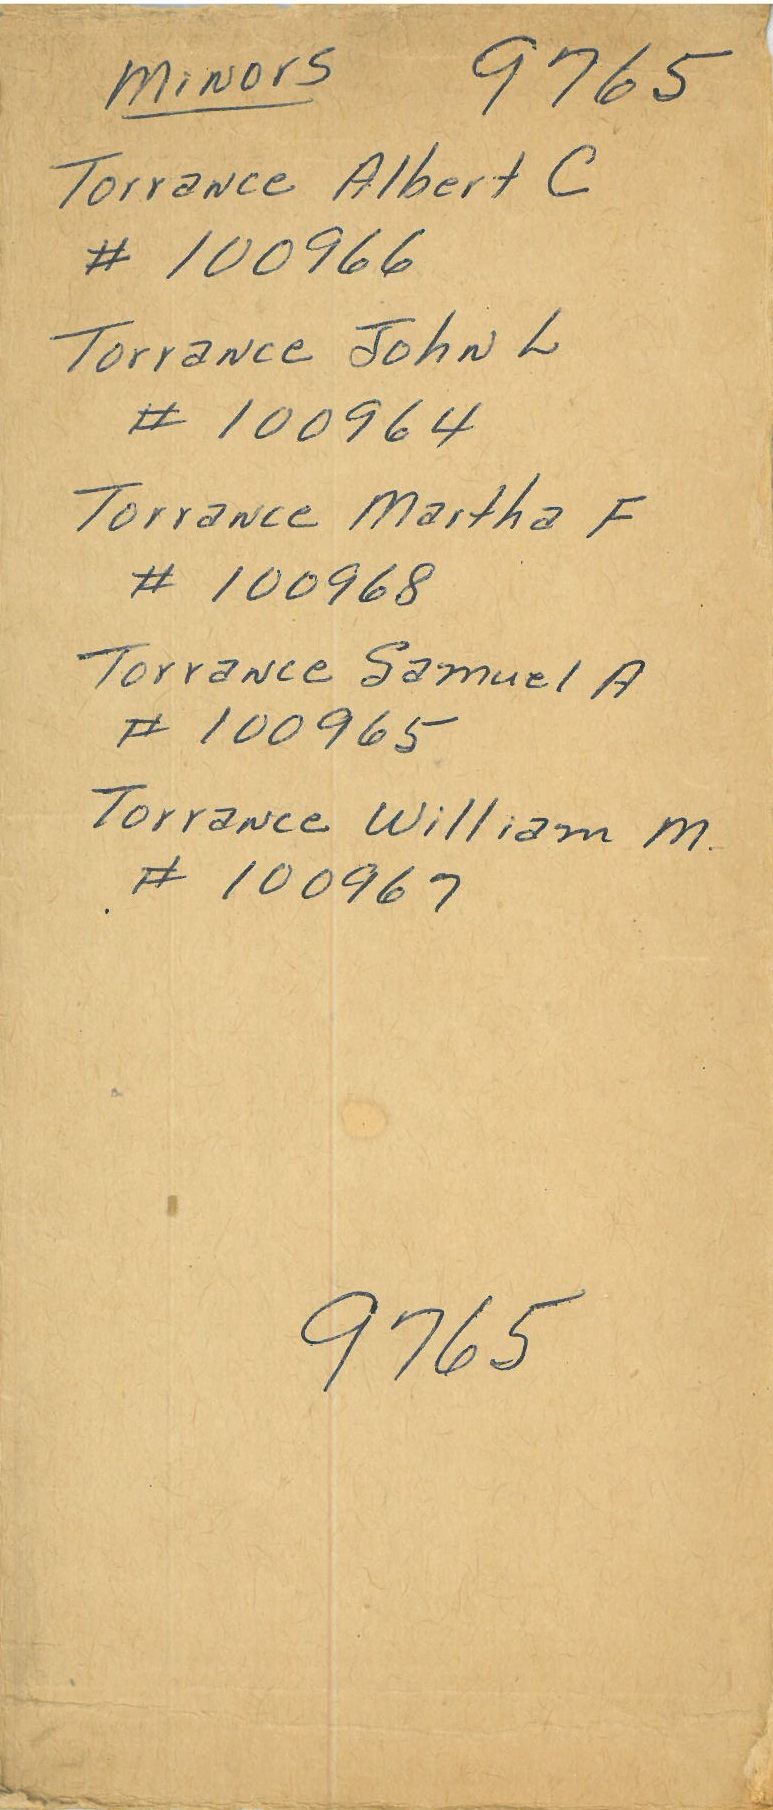 Minors 9765
Torrance Albert C
# 100966
Torrance John L
# 100964
Torrance Martha F
# 100968
Torrance Samuel A
# 100965
Torrance William M.
# 100967
9765